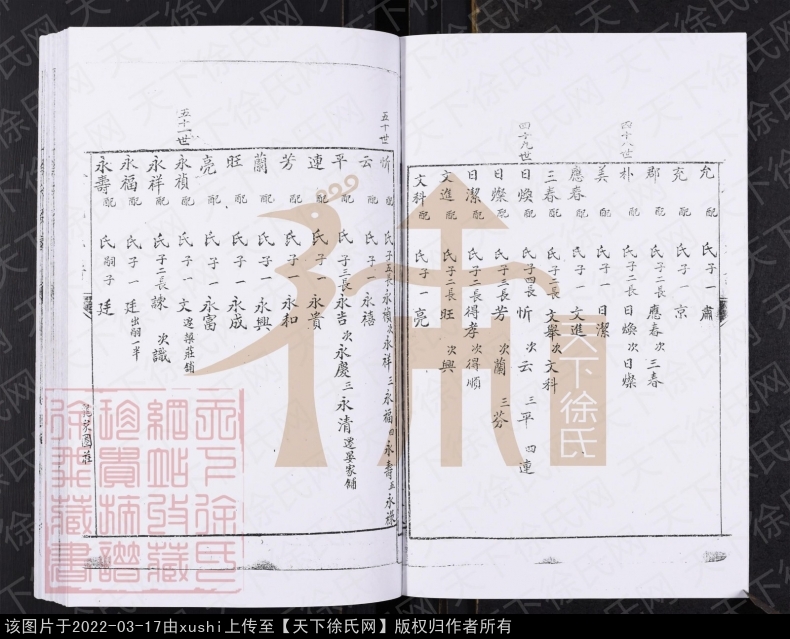 四十八世
允 配 氏子一 肅
充 配 氏子一 京
鄰 配 氏子二長 應春 次 三春
朴 配 氏子二長 日煥 次 日燦
美 配 氏子一 日潔
四十九世
應春 配 氏子一 文進
三春 配 氏子二長 文舉 次 文科
日煥 配 氏子四長 忻 次 云 三 平 四 連
日燦 配 氏子三長 芳 次 蘭 三 芬
日潔 配 氏子二長 得孝 次 得順
文進 配 氏子二長 旺 次 興
文科 配 氏子一 亮
五十世
忻 配 氏子五長 永禎 次 永祥 三 永福 四 永壽 五 永祿
云 配 氏子一 永禧
平 配 氏子三長 永吉 次 永慶 三 永清 遷吳家鋪
連 配 氏子一 永貴
芳 配 氏子一 永和
蘭 配 氏子一 永興
旺 配 氏子一 永成
亮 配 氏子一 永富
五十一世
永禎 配 氏子一 文 遷 莊鋪
永祥 配 氏子二長 諫 次 識
永福 配 氏子一 廷 出嗣一半
永壽 配 氏嗣子 廷
園莊
天下徐氏
天下徐氏
網站收藏
珍貴摘譜
徐典藏書
天下徐氏网
该图片于2022-03-17由xushi上传至【天下徐氏网】版权归作者所有